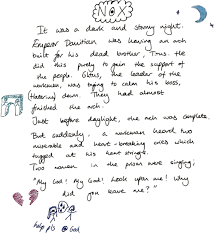 NO X
It was a dark and stormy night.
Emperor Domitian was having an arch
built for his dead brother, Titus. He
did this purely to gain the support of
the people. Gbus, the leader of the
workmen, was trying to calm his boss,
down. They had almost
finished the arch.
Just before daylight, the arch was complete.
But suddenly, a workman heard two
miserable and heart-breaking cries which
tugged at his heart strings.
Two women in the prison were singing;
"My God! My God! Look upon me! Why
did you leave me?"
help pls @ God